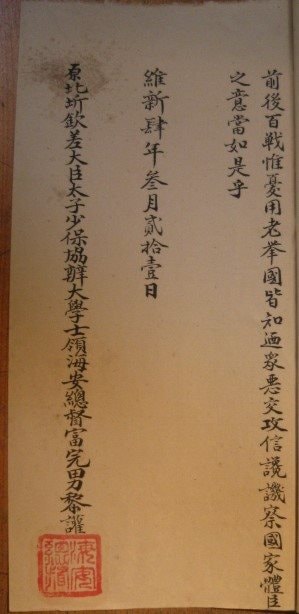 前後百戰惟憂用老舉國皆知迺衆惡交攻信讒譏察國家體臣
之意當如是乎
維新肆年叁月貳拾壹日
原北圻欽差大臣太子少保協辦大學士領海安總督富完男黎讙